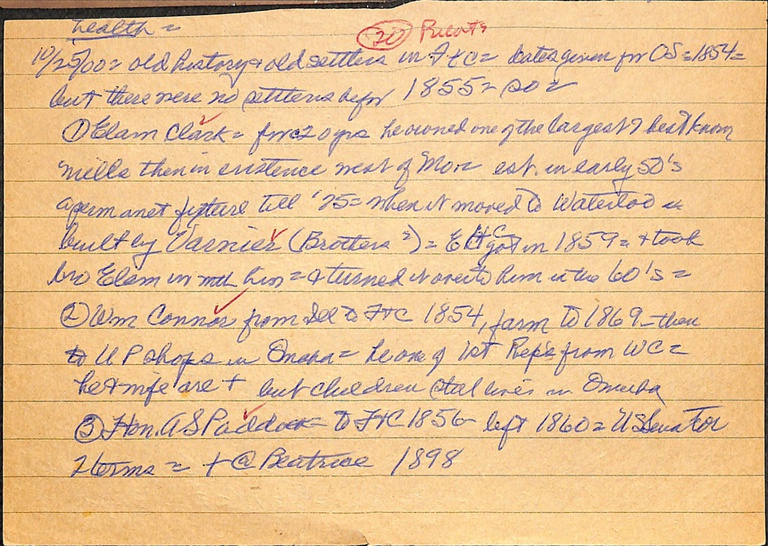 health =
(20) Recoats
10/25/00 = old history + old settlers in FtC = dates given for OS = 1854 =
but there were no settlers befor 1855 = so =
① Elam Clark = for 20 yrs he owned one of the largest & best known
mills then in existence west of Mo = est. in early 50's
a permanet fixture till '25 = when it moved to Waterloo =
built by Varnier (Brothers 2) = E H C got in 1859 = + took
bro Elam in with him = & turned it over to him in the 60's =
② Wm Connor from Ill to FtC 1854, farm to 1869 - then
to UP shops in Omaha = he one of 1st Reps from WC =
he & wife are + but children still live in Omaha
③ Hon. AS Paddock = to FtC 1856 left 1860 = US Senator
2 terms = + @ Beatrice 1898